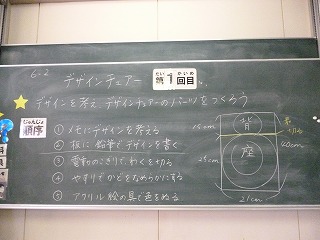 6-2
デザインチェアー 第1回目
だい かいめ
★デザインを考え、デザインチェアーのパーツをつくろう
じゅんじょ
順序
① メモにデザインを考える
② 板に鉛筆でデザインを書く
③ 電動のこぎりで、わくを切る
④ やすりでかどをなめらかにする
⑤ アクリル絵の具で色をぬる
背
座
切る
15cm
25cm
40cm
21cm